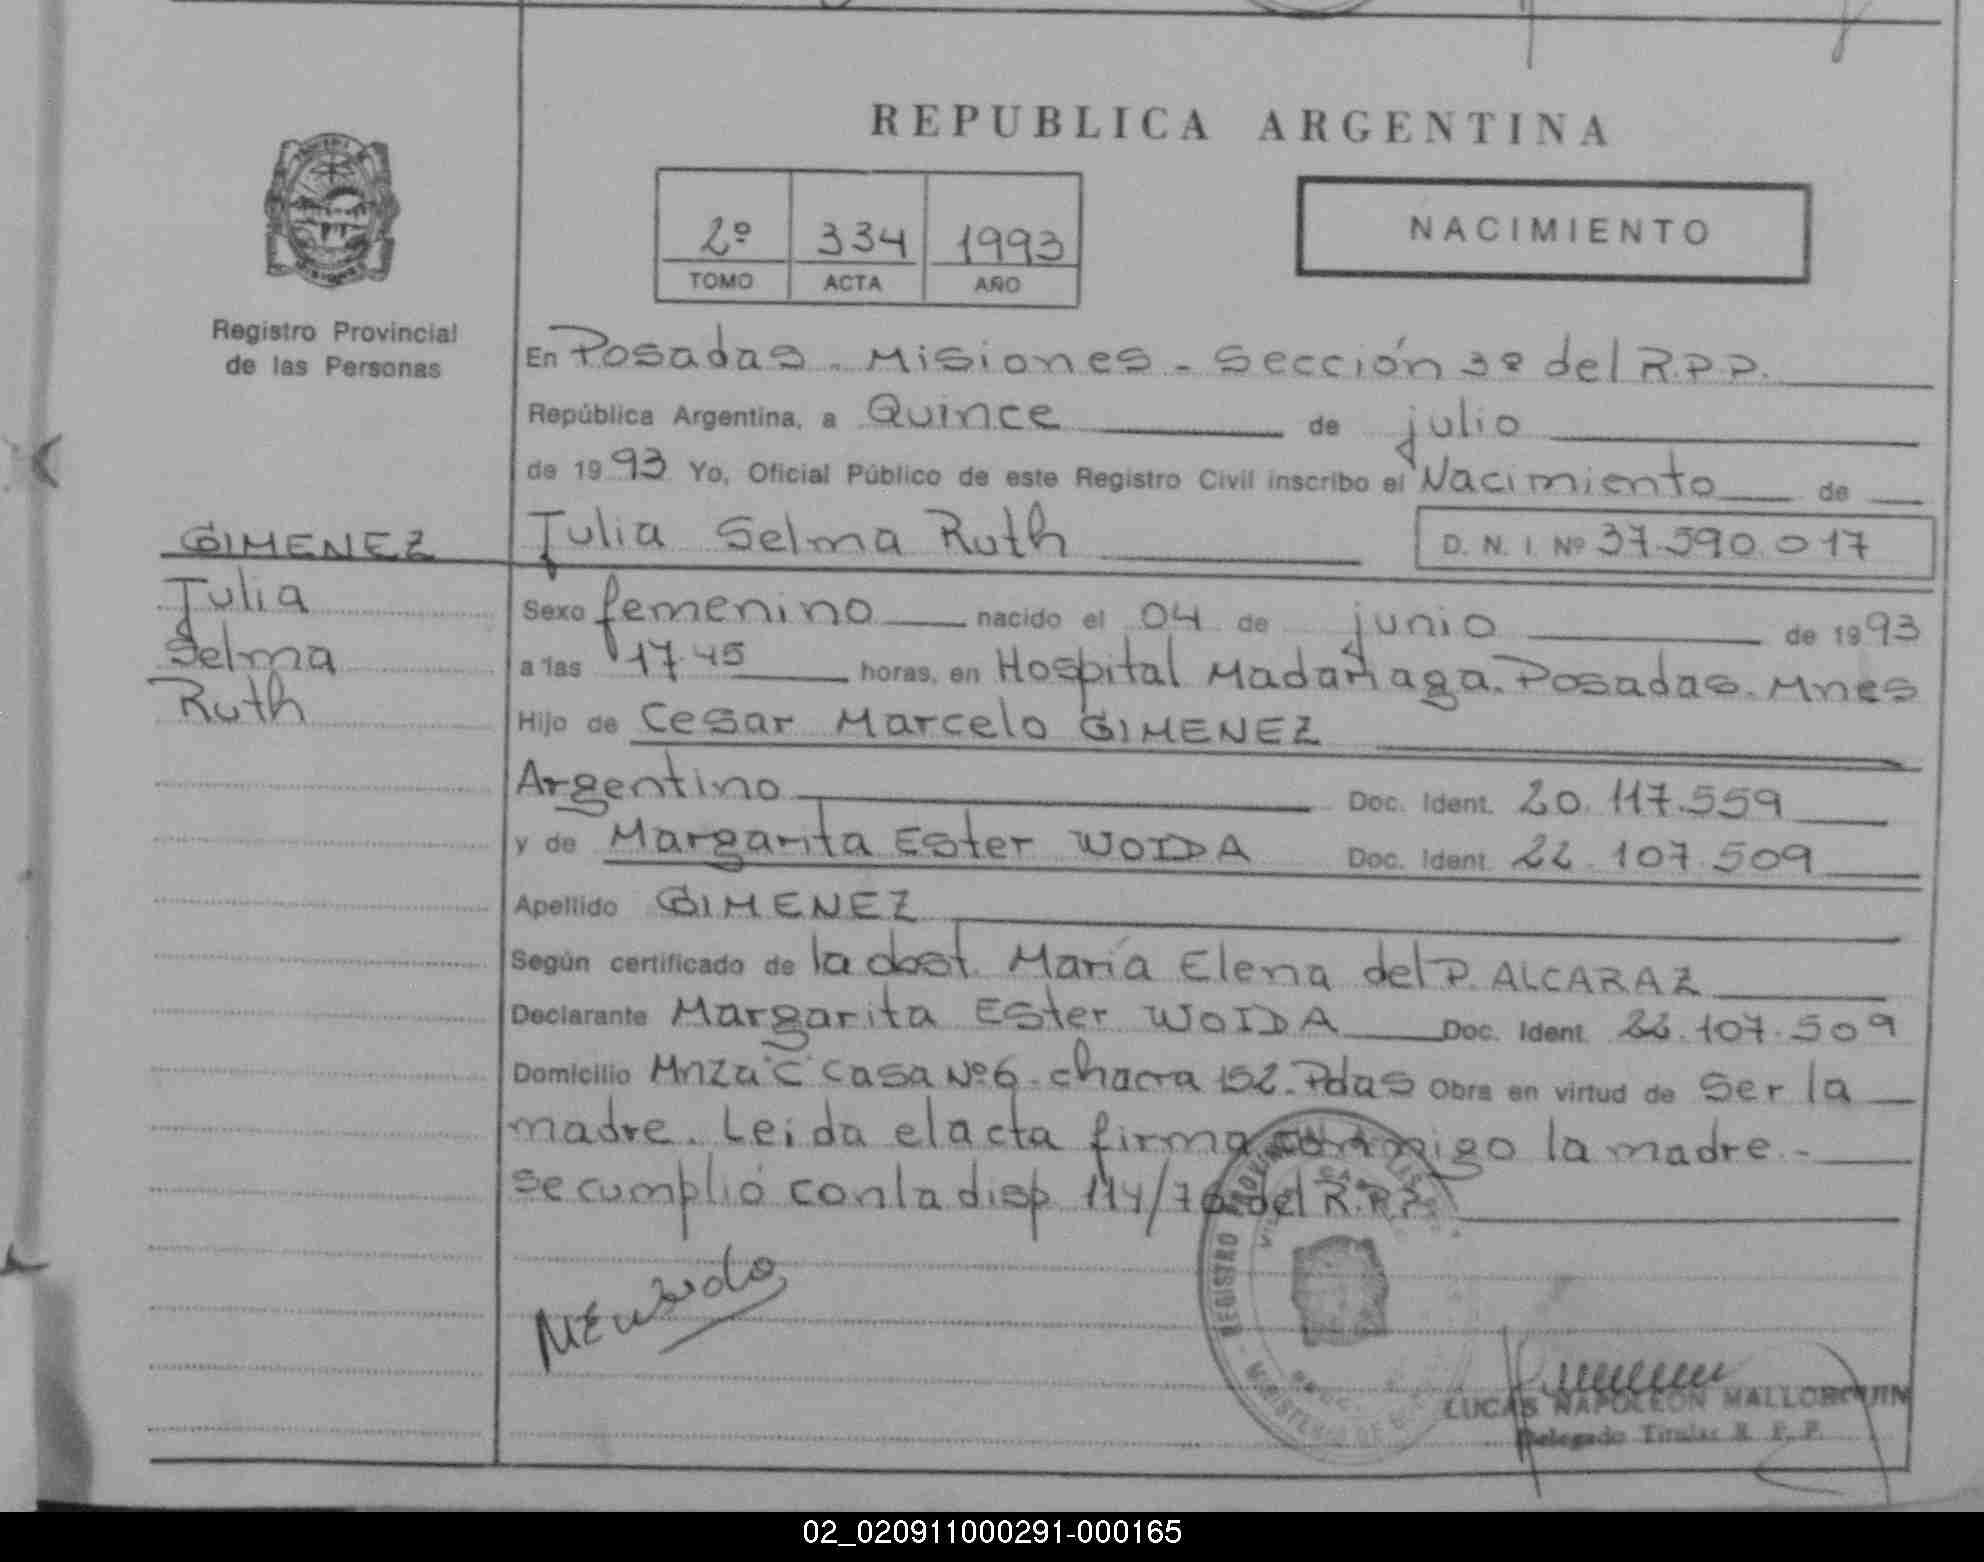 REPUBLICA ARGENTINA
2º 334 1993
TOMO ACTA AÑO
NACIMIENTO
Registro Provincial
de las Personas
En Posadas - Misiones - Sección 3º del R.P.P.
República Argentina, a Quince de julio
de 1993 Yo, Oficial Público de este Registro Civil inscribo el Nacimiento de
Julia Selma Ruth D. N. I. Nº 37.590.017
GIMENEZ
Julia
Selma
Ruth
Sexo femenino nacido el 04 de junio de 1993
a las 17.45 horas, en Hospital Madariaga. Posadas. Mnes
Hijo de Cesar Marcelo GIMENEZ
Argentino Doc. Ident. 20.117.559
y de Margarita Ester WOIDA Doc. Ident. 22.107.509
Apellido GIMENEZ
Según certificado de la obst. María Elena del P. ALCARAZ
Declarante Margarita Ester WOIDA Doc. Ident. 22.107.509
Domicilio Mnza "C" Casa Nº 6 - chacra 152. Pdas Obra en virtud de ser la
madre. Leida el acta firma conmigo la madre.-
se cumplió con la disp 114/76 del R.P.P.
REGISTRO
MINISTERIO DE
LUCAS NAPOLEON MALLORQUIN
Delegado Titular R. P. P.
02_020911000291-000165